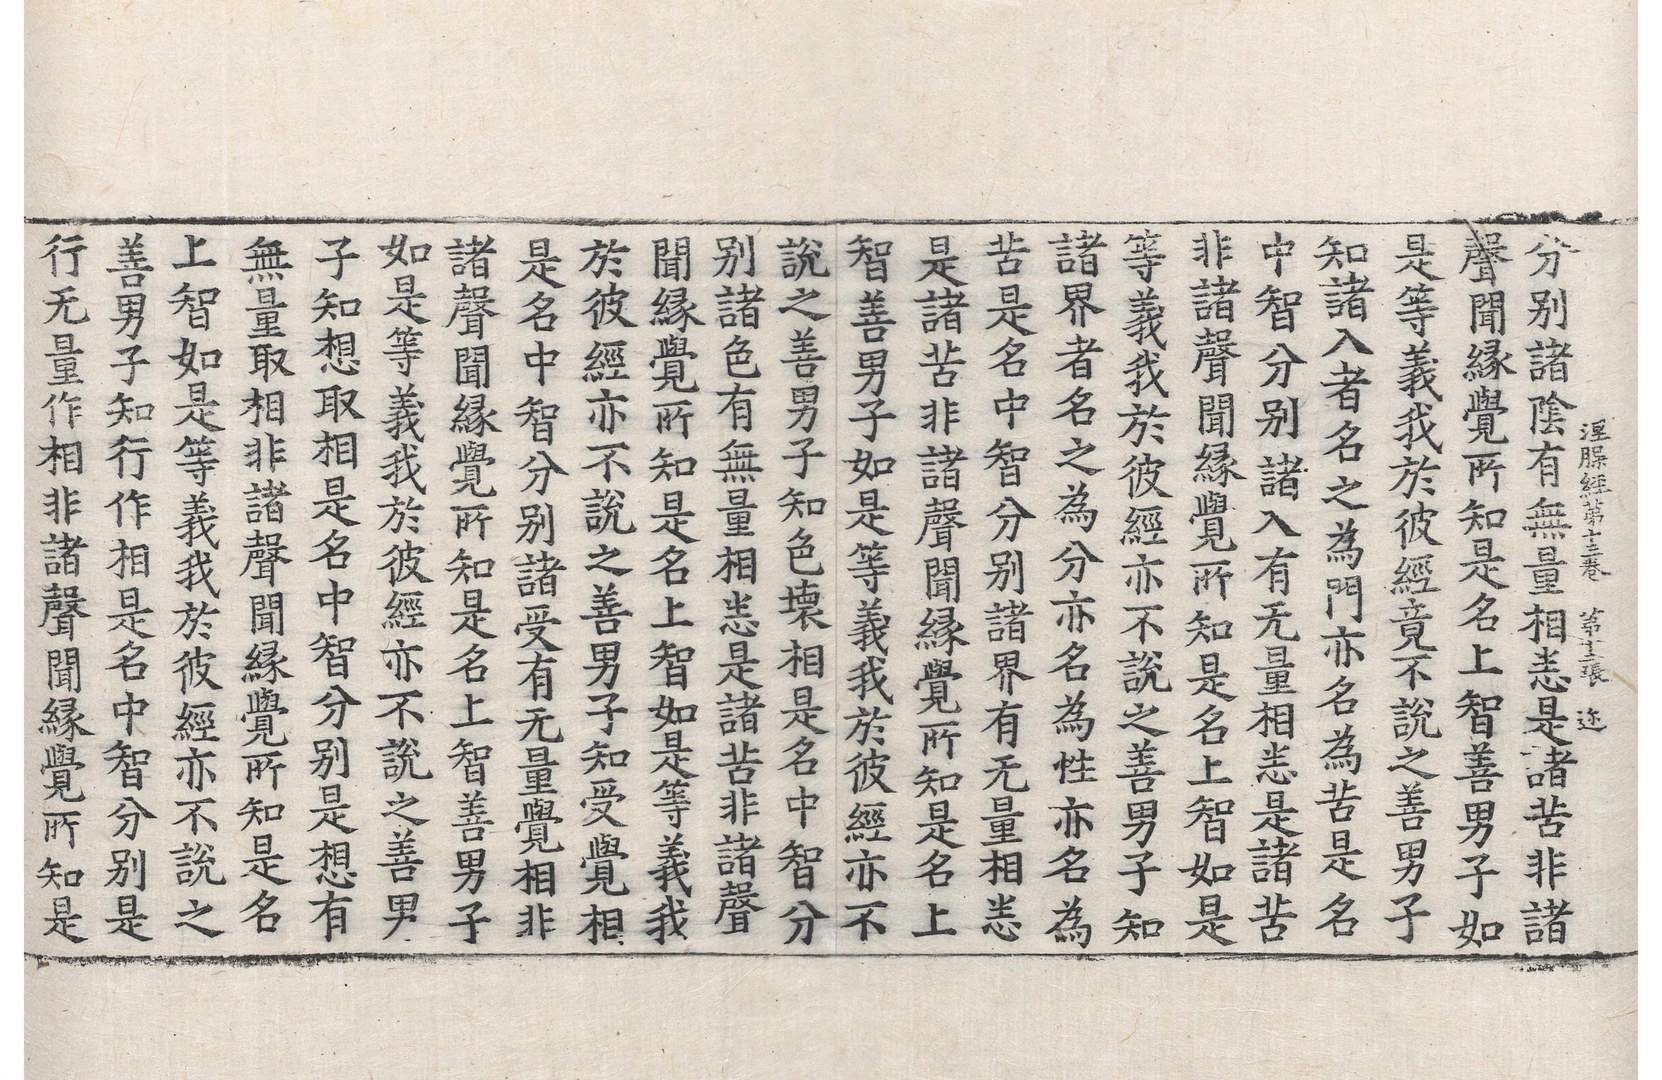 涅槃經第十三卷 第十二張 迩
分别諸陰有無量相悉是諸苦非諸
聲聞縁覺所知是名上智善男子如
是等義我於彼經竟不說之善男子
知諸入者名之為門亦名為苦是名
中智分别諸入有无量相悉是諸苦
非諸聲聞縁覺所知是名上智如是
等義我於彼經亦不說之善男子知
諸界者名之為分亦名為性亦名為
苦是名中智分别諸界有无量相悉
是諸苦非諸聲聞縁覺所知是名上
智善男子如是等義我於彼經亦不
說之善男子知色壞相是名中智分
别諸色有無量相悉是諸苦非諸聲
聞縁覺所知是名上智如是等義我
於彼經亦不說之善男子知受覺相
是名中智分别諸受有无量覺相非
諸聲聞縁覺所知是名上智善男子
如是等義我於彼經亦不說之善男
子知想取相是名中智分别是想有
無量取相非諸聲聞縁覺所知是名
上智如是等義我於彼經亦不說之
善男子知行作相是名中智分别是
行无量作相非諸聲聞縁覺所知是